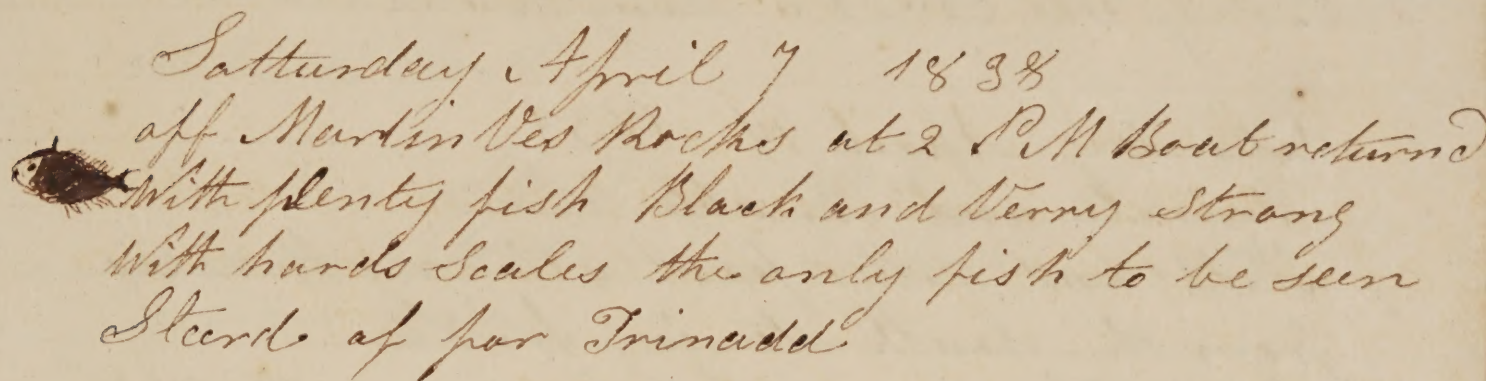 Satturday April 7 1838
off Martin Ves Rocks at 2 P M Boat returnd
With plenty fish Black and Verry Strong
With hards Scales the only fish to be seen
Steerd of for Trinadd